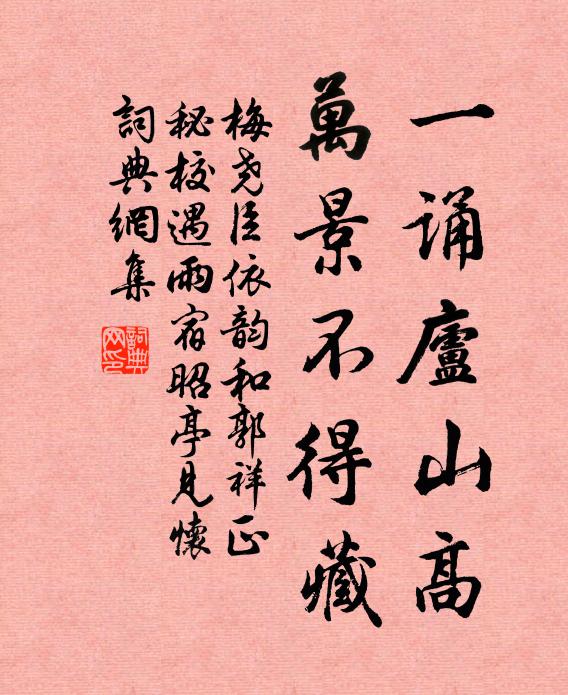 一诵廬山高
萬景不得藏
梅尧臣依韵和郭祥正
秘校遇雨宿昭亭見懷
詞典網集
詞典网印